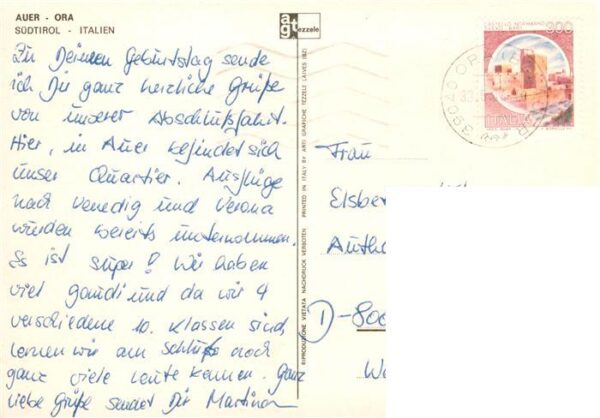 AUER - ORA
SÜDTIROL - ITALIEN
Zu Deinem Geburtstag sende
ich Dir ganz herzliche Grüße
von unserer Abschlußfahrt.
Hier, in Auer befindet sich
unser Quartier. Ausflüge
nach Venedig und Verona
wurden bereits unternommen.
Es ist super! Wir haben
viel gaudi und da wir 4
verschiedene 10. Klassen sind,
lernen wir am Schluß noch
ganz viele Leute kennen. Ganz
liebe Grüße sendet Dir Martina
agt tezzele
RIPRODUZIONE VIETATA NACHDRUCK VERBOTEN PRINTED IN ITALY BY ARTI GRAFICHE TEZZELE LAIVES (BZ)
CASTELLO NORMANNO
300
ITALIA
39040 OR
Frau
Elsbe
D-800